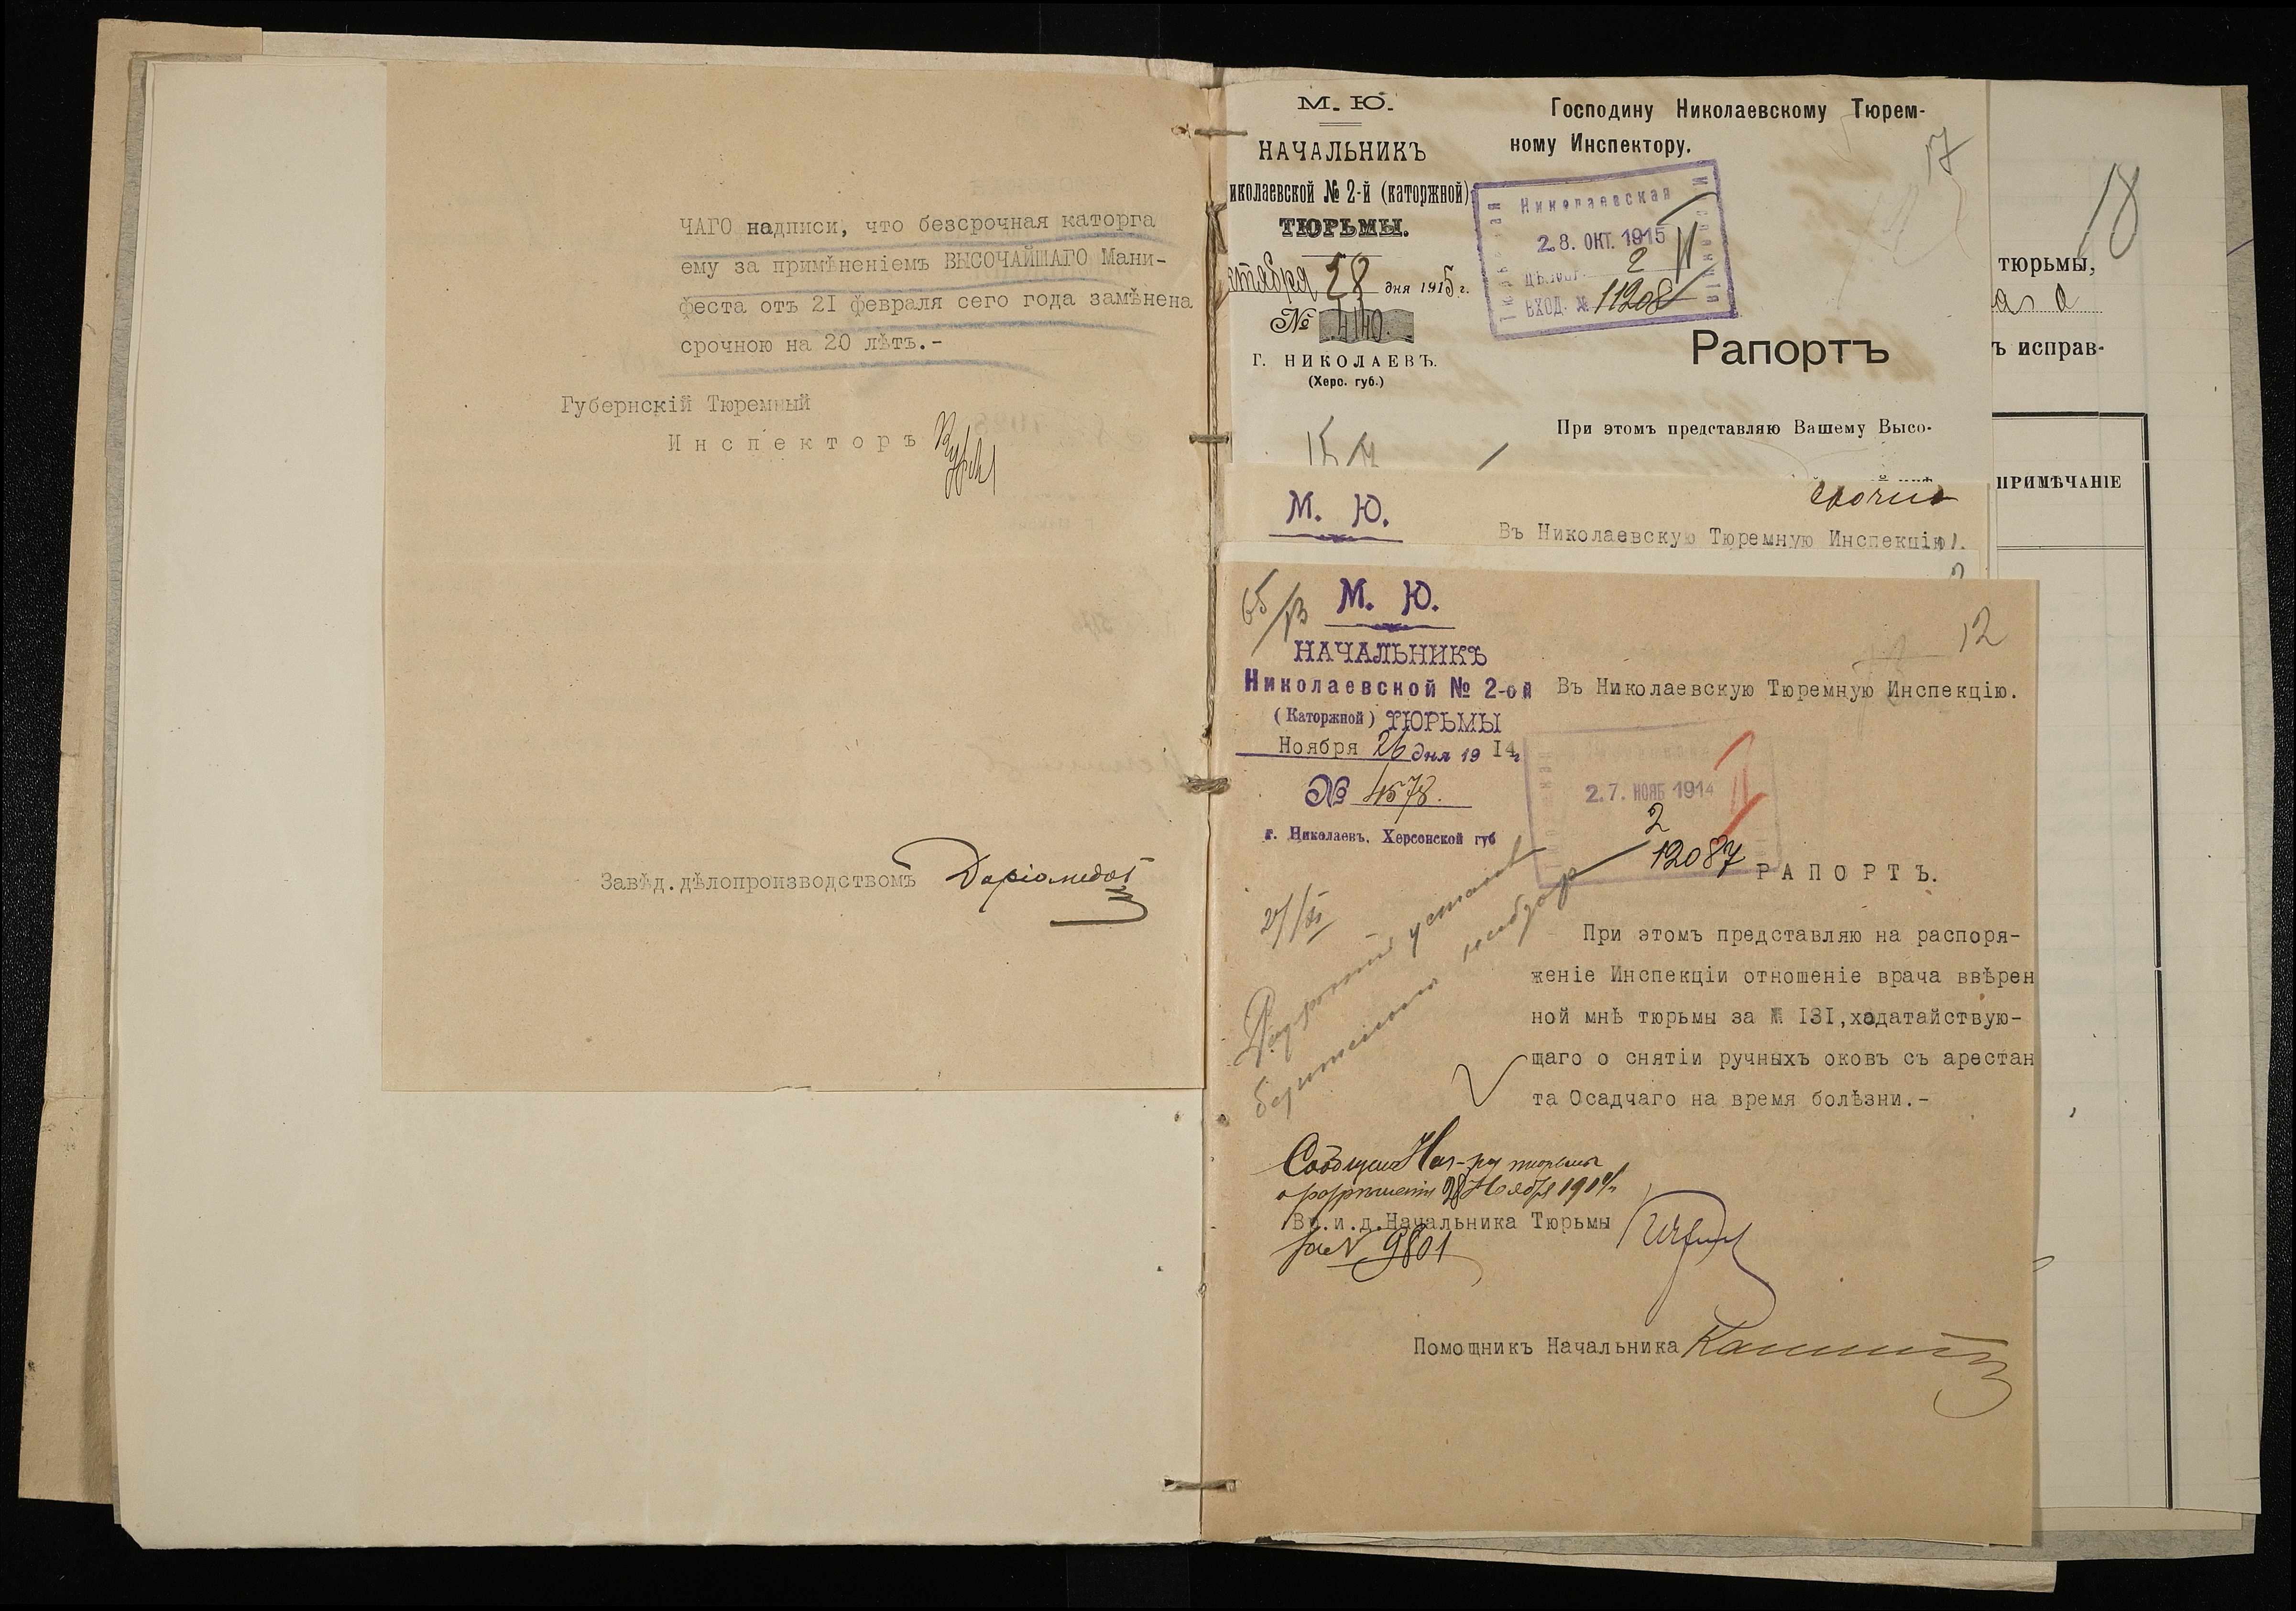 ЧАГО надписи, что безсрочная каторга
ему за примѣненіемъ ВЫСОЧАЙШАГО Мани-
феста отъ 21 февраля сего года замѣнена
срочною на 20 лѣтъ.-
Губернскій Тюремный
Инспекторъ
Завѣд.дѣлопроизводствомъ
М. Ю.
НАЧАЛЬНИКЪ
иколаевской № 2-й (каторжной)
ТЮРЬМЫ.
ктября 28 дня 1915 г.
№ 4140.
Г. НИКОЛАЕВЪ.
(Херс. губ.)
Господину Николаевскому Тюрем-
ному Инспектору.
17
Николаевская
28. ОКТ. 1915
2
ВХОД. № 11208
Рапортъ
При этомъ представляю Вашему Высо-
18
тюрьмы,
ъ исправ-
ПРИМѢЧАНІЕ
М. Ю.
Срочно
Въ Николаевскую Тюремную Инспекцію.
65/13
М. Ю.
НАЧАЛЬНИКЪ
Николаевской № 2-ой
(Каторжной) ТЮРЬМЫ
Ноября 26 дня 19 14 г.
№ 4578.
г. Николаевъ, Херсонской губ
12
Въ Николаевскую Тюремную Инспекцію.
27. НОЯБ 1914
2
12087
РАПОРТЪ.
27/XI
При этомъ представляю на распоря-
женіе Инспекціи отношеніе врача ввѣрен
ной мнѣ тюрьмы за № 131,ходатайствую-
щаго о снятіи ручныхъ оковъ съ арестан
та Осадчаго на время болѣзни.-
Сообщено Нач-ку тюрьмы
о разрешеніи 28 Ноября 1914 г.
Вр.и.д.Начальника Тюрьмы
за № 9801
Помощникъ Начальника